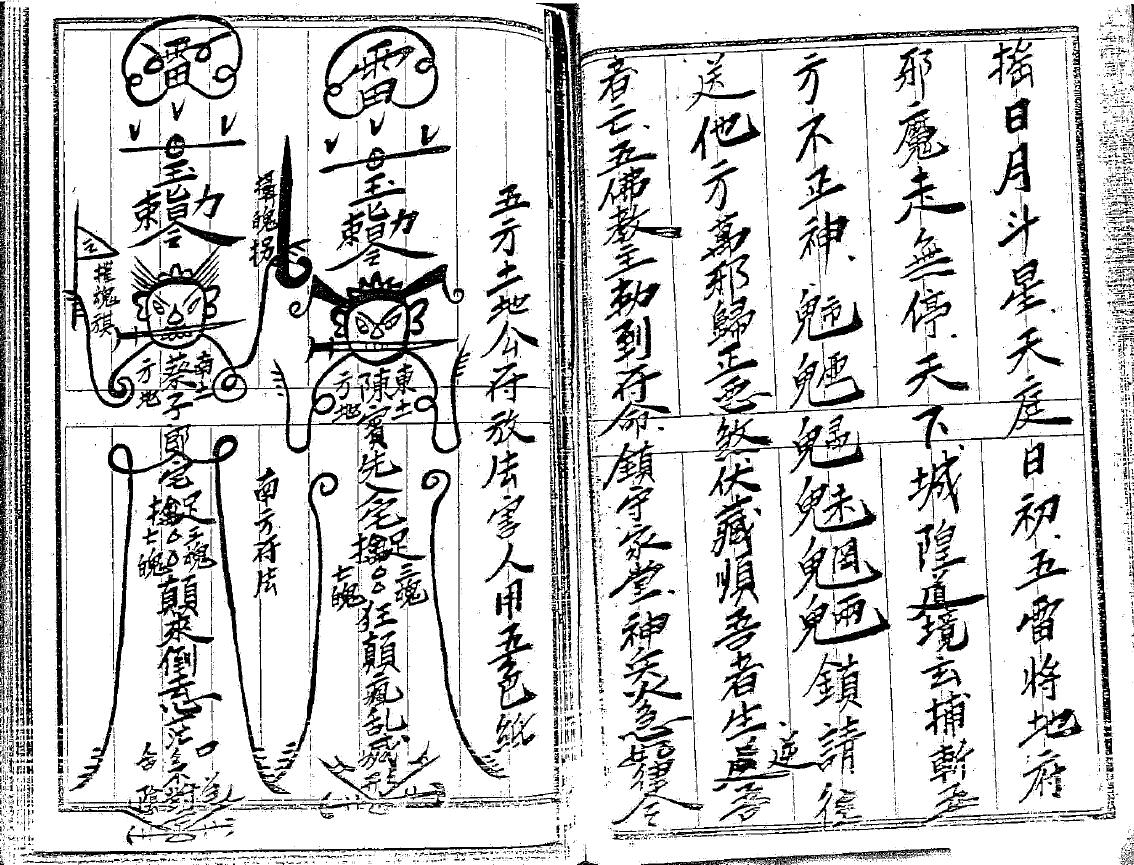 搖日月斗星天庭日初.五雷将地府
邪魔走無停.天下城隍道境玄捕斬
方不正神.魑魅鬼魅魍魎鎖請
送他方萬邪歸正惡煞伏藏順吾者生逆吾
者亡.五佛教主勅到符命.鎮守家堂.神兵火急如律令
五方土地公符放法害人用五色紙
雷
玉旨
勅令
東方土地
陳賓先宅
擒足三魂七魄
狂顛瘋乱
攝魄拐
雷
玉旨
勅令
南方土地
蔡子郎宅
擒足三魂七魄
顛來倒去
摧魂旗
南方符法